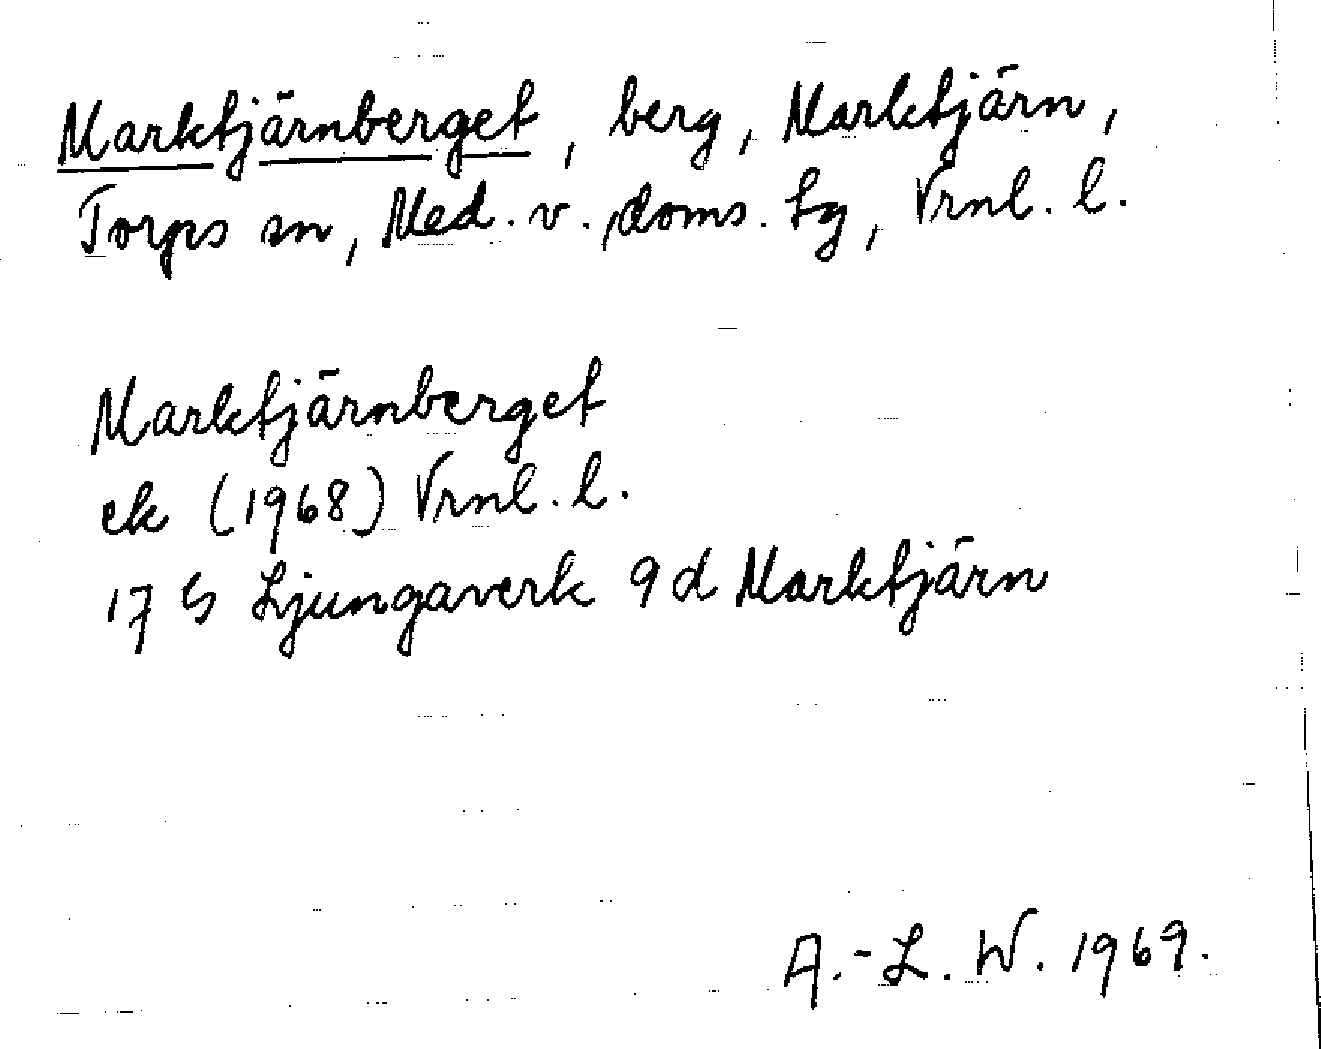 Marktjärnberget, berg, Marktjärn,
Torps sn, Med. v. doms. lg, Vrnl. l.
Marktjärnberget
ek (1968) Vrnl. l.
17 G Ljungaverk 9d Marktjärn
A.-L. W. 1969.